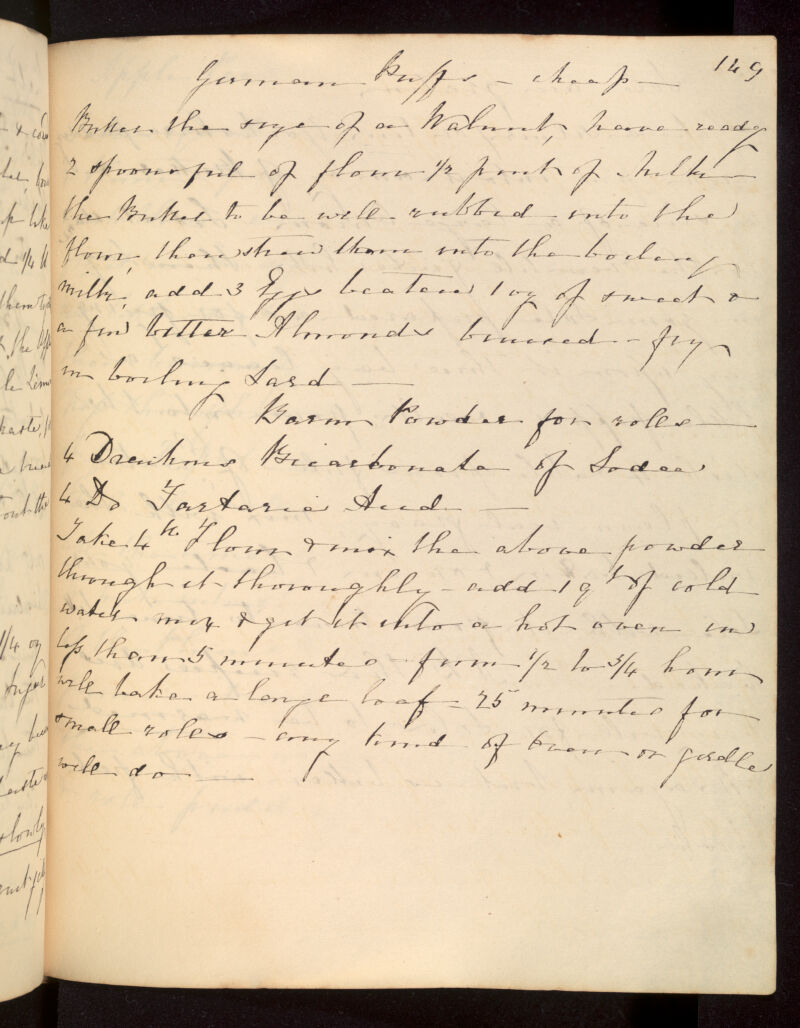 149
German Puffs - cheap -
Butter the size of a Walnut, have ready
2 spoonsful of flour 1/2 pint of Milk
the Butter to be well rubbed into the
flour, then strew them into the boiling
milk, add 3 Eggs beaten 1 oz of sweet &
a few bitter Almonds bruised - fry
in boiling Lard —
Barm Powder for roles —
4 Drachms Bicarbonate of Soda
4 Do Tartaric Acid —
Take 4 lb Flour & mix the above powder
through it thoroughly - add 1 qt of cold
water mix & get it into a hot oven in
less than 5 minutes - from 1/2 to 3/4 hour
will bake a large loaf - 25 minutes for
small roles - any kind of oven or girdle
will do —